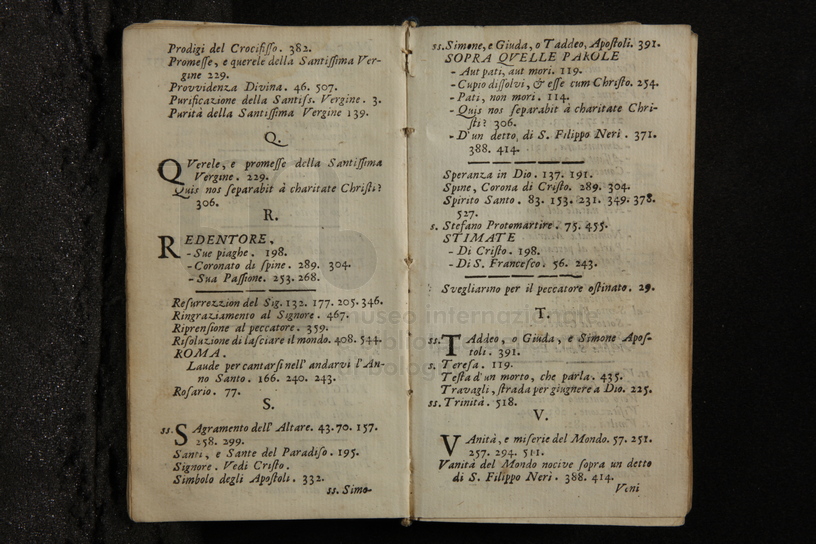 Prodigi del Crocifiſſo. 382.
Promeſſe, e querele della Santiſſima Ver-
gine 229.
Provvidenza Divina. 46. 507.
Purificazione della Santiſs. Vergine. 3.
Purità della Santiſſima Vergine 139.
Q.
Querele, e promeſſe della Santiſſima
Vergine. 229.
Quis nos ſeparabit à charitate Chriſti?
306.
R.
REDENTORE,
- Sue piaghe. 198.
- Coronato di ſpine. 289. 304.
- Sua Paſſione. 253. 268.
Reſurrezzion del Sig. 132. 177. 205. 346.
Ringraziamento al Signore. 467.
Riprenſione al peccatore. 359.
Riſoluzione di laſciare il mondo. 408. 544.
ROMA.
Laude per cantarſi nell' andarvi l'An-
no Santo. 166. 240. 243.
Roſario. 77.
S.
ss. SAgramento dell' Altare. 43. 70. 157.
258. 299.
Santi, e Sante del Paradiſo. 195.
Signore. Vedi Criſto.
Simbolo degli Apoſtoli. 332.
ss. Simo-
ss. Simone, e Giuda, o Taddeo, Apoſtoli. 391.
SOPRA QVELLE PAROLE
- Aut pati, aut mori. 119.
- Cupio diſſolvi, & eſſe cum Chriſto. 254.
- Pati, non mori. 114.
- Quis nos ſeparabit à charitate Chri-
ſti? 306.
- D'un detto di S. Filippo Neri. 371.
388. 414.
Speranza in Dio. 137. 191.
Spine, Corona di Criſto. 289. 304.
Spirito Santo. 83. 153. 231. 349. 378.
527.
s. Stefano Protomartire. 75. 455.
STIMATE
- Di Criſto. 198.
- Di S. Franceſco. 56. 243.
Svegliarino per il peccatore oſtinato. 29.
T.
ss. TAddeo, o Giuda, e Simone Apoſ-
toli. 391.
s. Tereſa. 119.
Teſta d'un morto, che parla. 435.
Travagli, ſtrada per giugnere a Dio. 225.
ss. Trinità. 518.
V.
VAnità, e miſerie del Mondo. 57. 251.
257. 294. 511.
Vanità del Mondo nocive ſopra un detto
di S. Filippo Neri. 388. 414.
Veni
museo internazionale